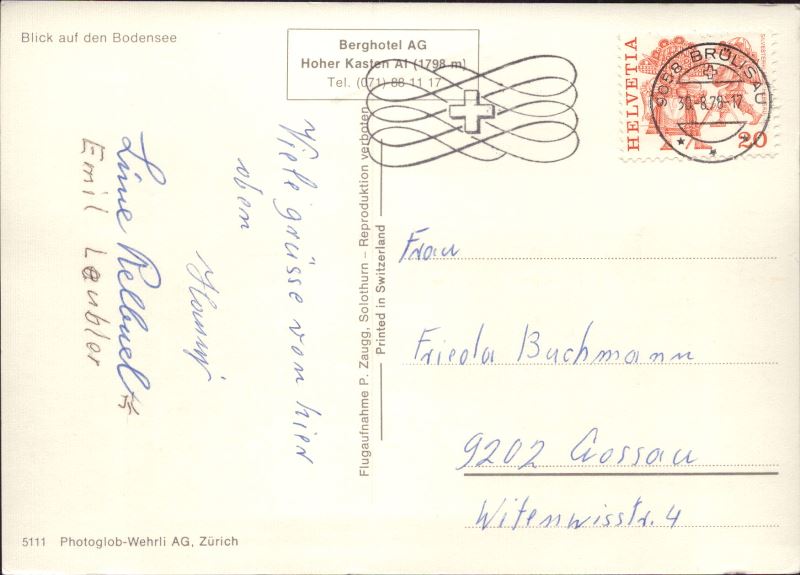 Blick auf den Bodensee
Berghotel AG
Hoher Kasten AI (1798 m)
Tel. (071) 88 11 17
HELVETIA
20
9058 BRÜLISAU
30.-8.78-17
Viele grüsse von hier
oben
Hanny
Emil Laubler
Flugaufnahme P. Zaugg, Solothurn – Reproduktion verboten
Printed in Switzerland
Frau
Frieda Buchmann
9202 Gossau
Witenwisstr. 4
5111 Photoglob-Wehrli AG, Zürich